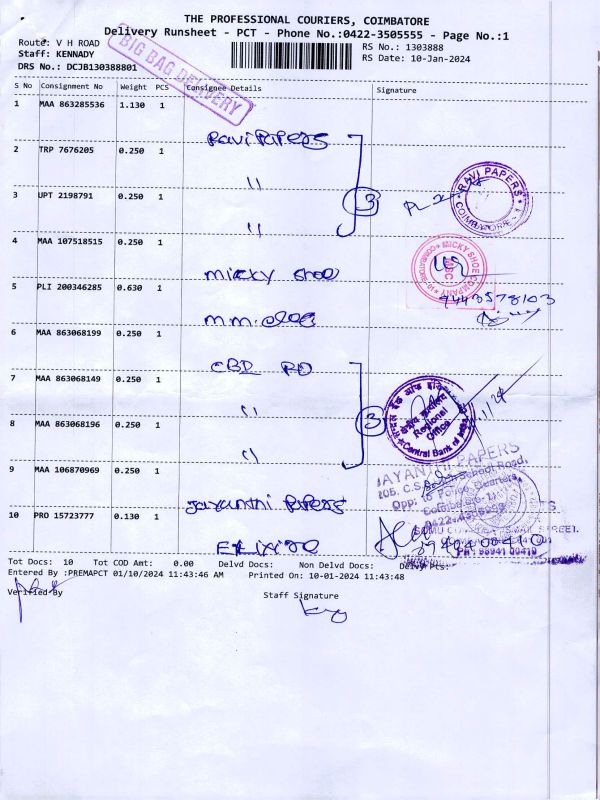 THE PROFESSIONAL COURIERS, COIMBATORE
Delivery Runsheet - PCT - Phone No.:0422-3505555 - Page No.:1
Route: V H ROAD
Staff: KENNADY
DRS No.: DCJB130388801
BIG BAG DELIVERY
RS No.: 1303888
RS Date: 10-Jan-2024
S No Consignment No Weight PCS Consignee Details Signature
1 MAA 863285536 1.130 1
Ravi Papers
2 TRP 7676205 0.250 1
"
3 UPT 2198791 0.250 1
"
3
RAVI PAPERS
COIMBATORE - 1
4 MAA 107518515 0.250 1
micky shoe
MICKY SHOE COMPANY
MSC
5 PLI 200346285 0.630 1
9443578103
6 MAA 863068199 0.250 1
CBD RO
7 MAA 863068149 0.250 1
"
8 MAA 863068196 0.250 1
"
3
Regional
Office
Central Bank of India
9 MAA 106870969 0.250 1
Jayanthi Papers
JAYANTHI PAPERS
School Road,
Opp: Police Quarters,
10 PRO 15723777 0.130 1
STREET.
9840400410
PH: 98941 00410
Tot Docs: 10 Tot COD Amt: 0.00 Delvd Docs: Non Delvd Docs: Delvd Pcs:
Entered By :PREMAPCT 01/10/2024 11:43:46 AM Printed On: 10-01-2024 11:43:48
Verified By
Staff Signature